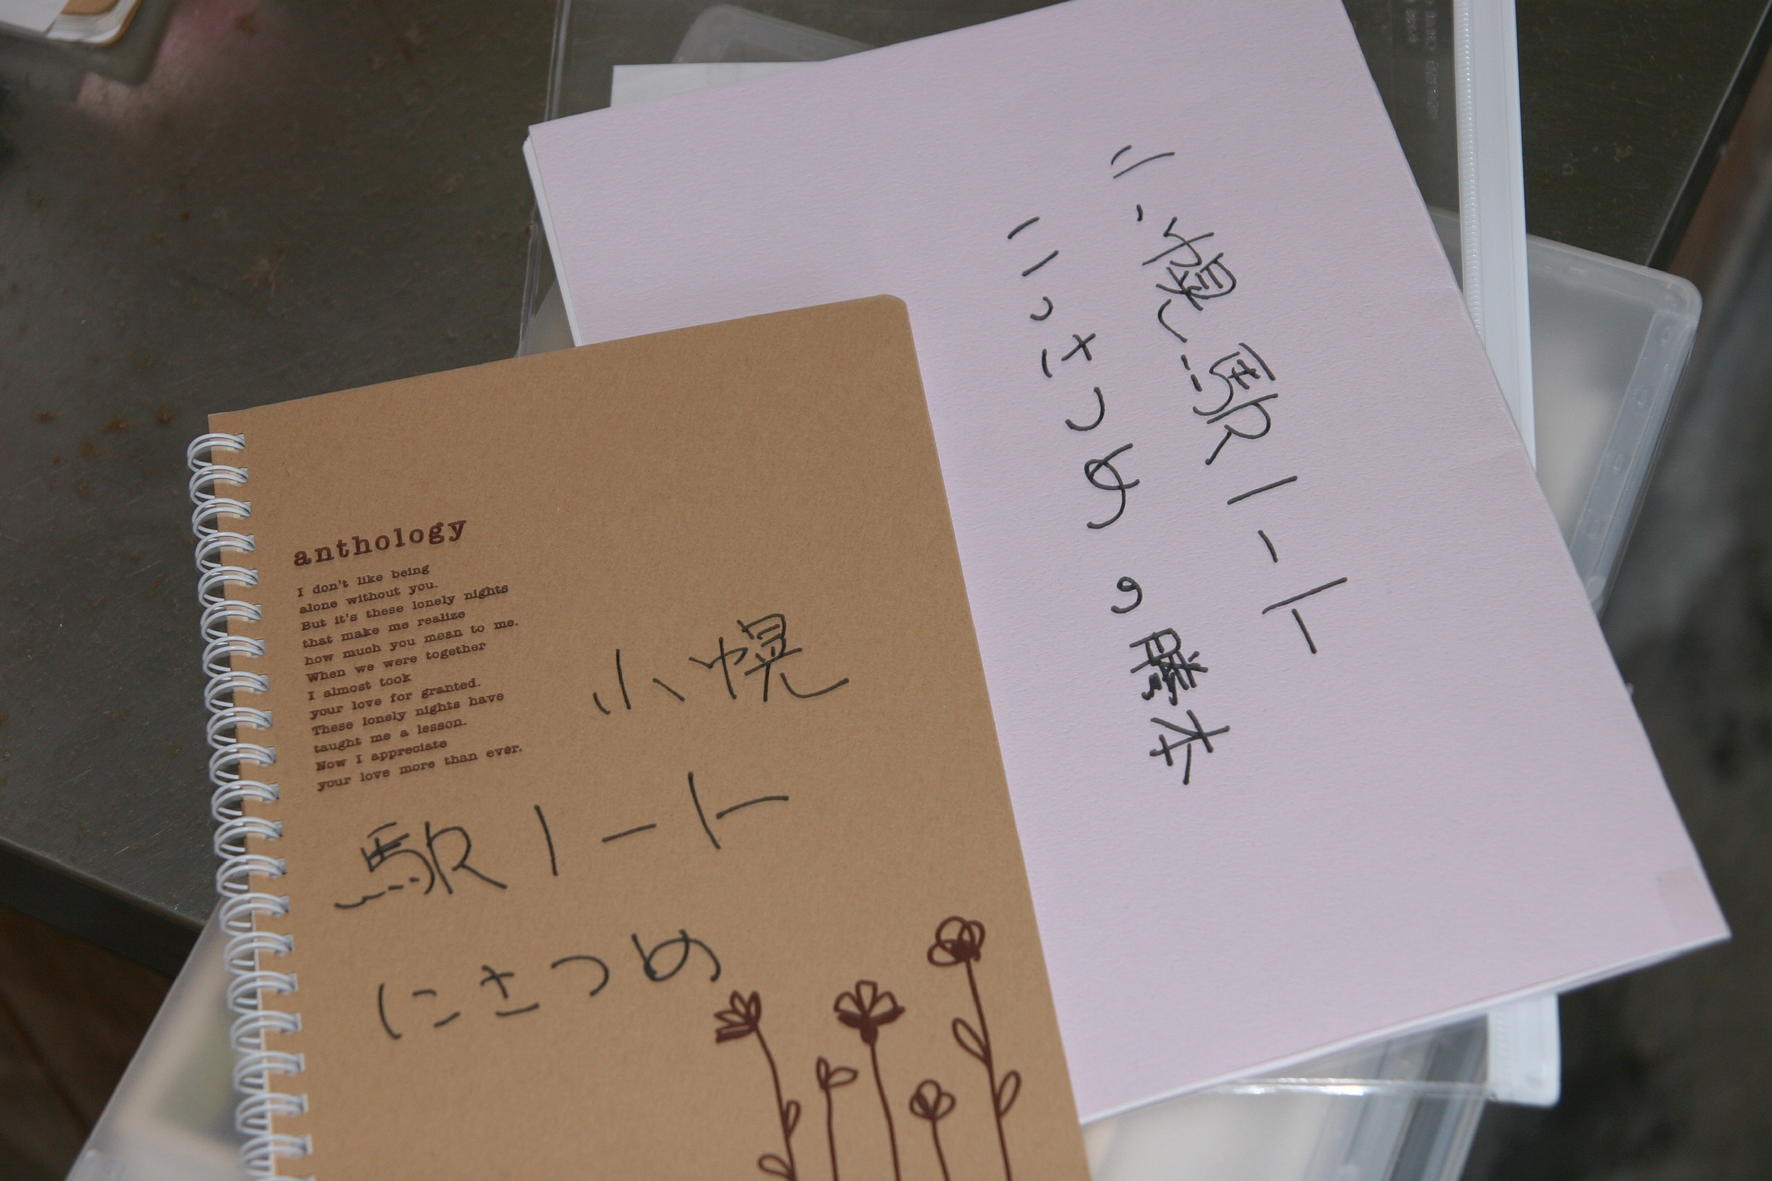 anthology
I don't like being
alone without you.
But it's these lonely nights
that make me realize
how much you mean to me.
When we were together
I almost took
your love for granted.
These lonely nights have
taught me a lesson.
Now I appreciate
your love more than ever.
小幌
駅ノート
にさつめ
小幌駅ノート
にっさつめの